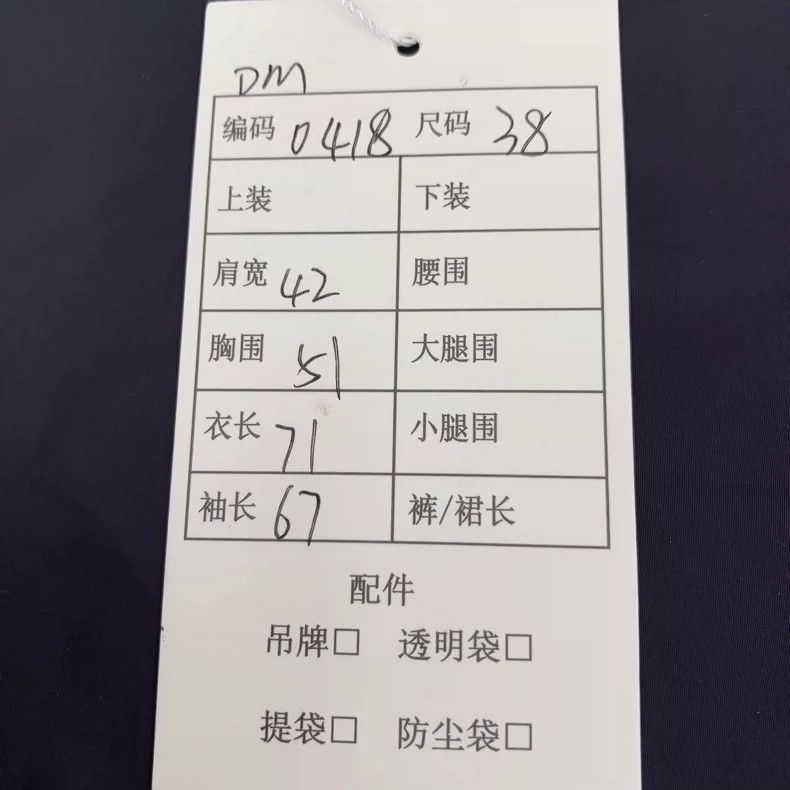 DM
编码 0418 尺码 38
上装 下装
肩宽 42 腰围
胸围 51 大腿围
衣长 71 小腿围
袖长 67 裤/裙长
配件
吊牌□ 透明袋□
提袋□ 防尘袋□